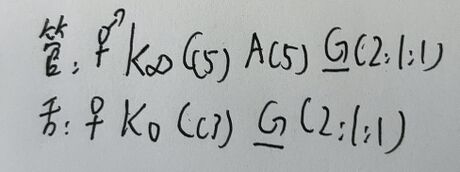 管: ⚥ K∞ C(5) A(5) G̲(2:1:1)
舌: ♀ K₀ C(3) G̲(2:1:1)